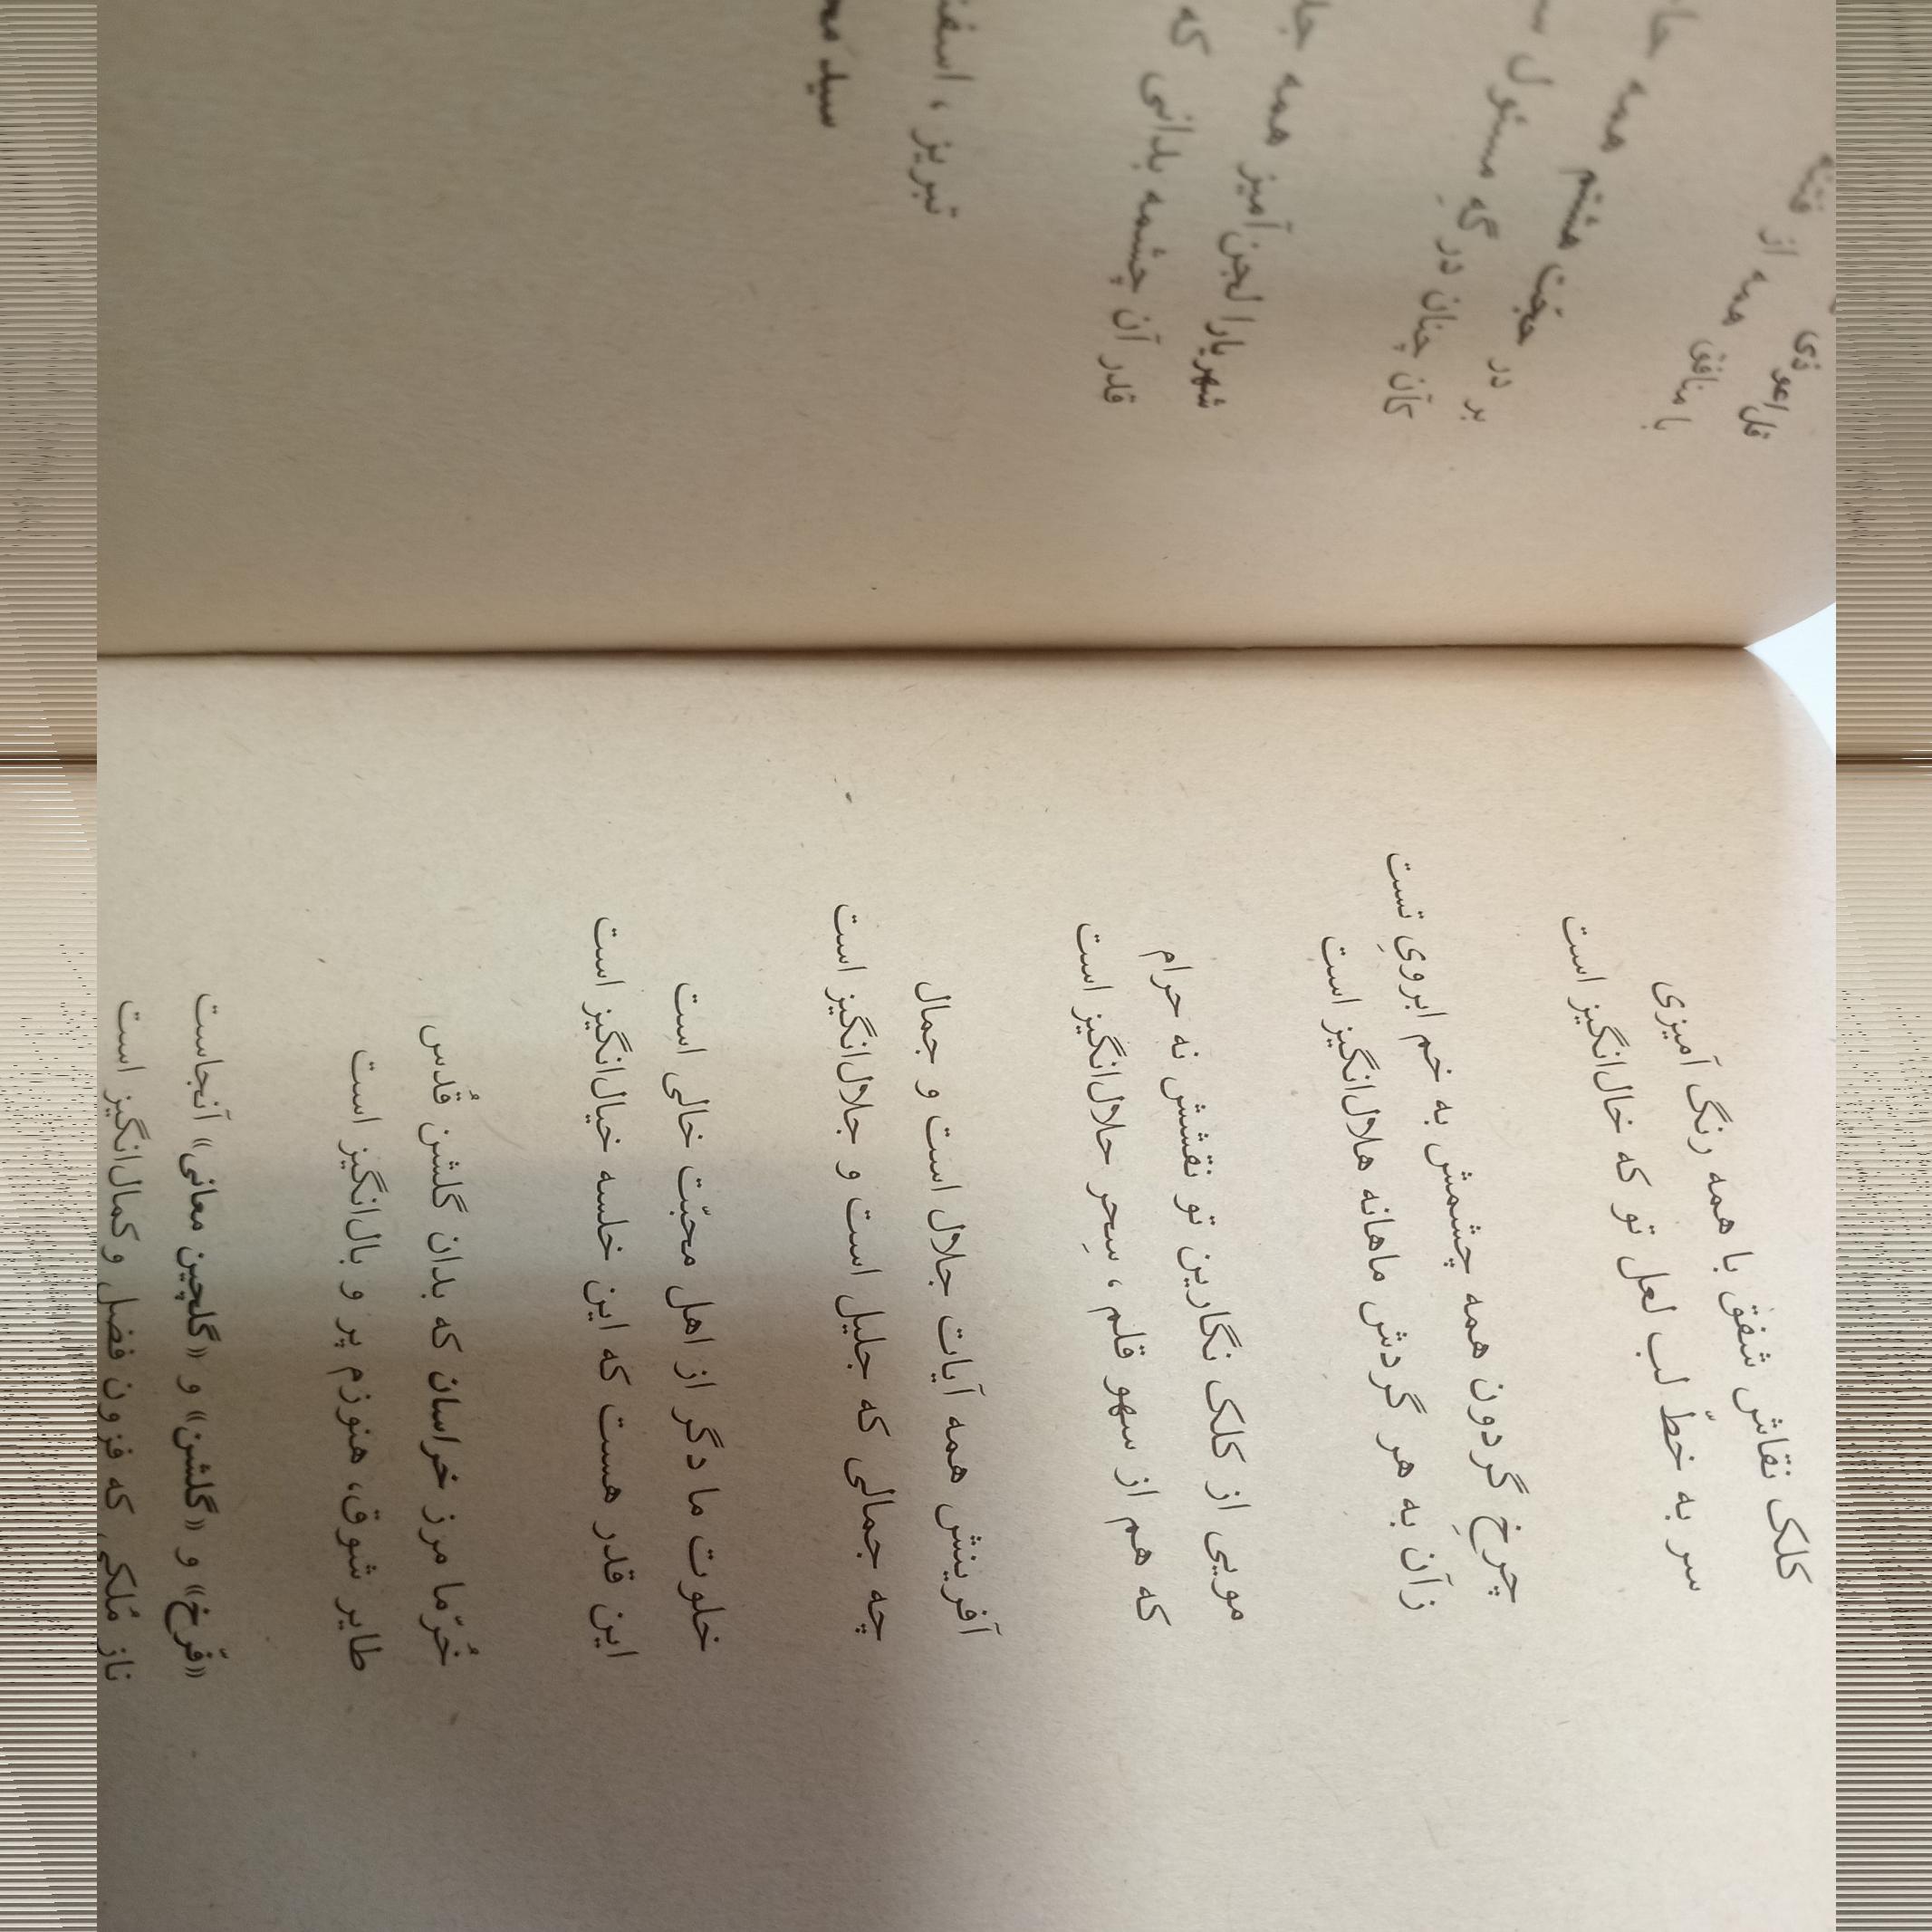 کلک نقاش شفق با همه رنگ آمیزی
سر به خطّ لب لعل تو که خال‌انگیز است
چرخِ گردون همه چشمش به خم ابرویِ تست
زآن به هر گردش ماهانه هلال‌انگیز است
مویی از کلک نگارین تو نقشش نه حرام
که هم از سهو قلم، سِحر حلال‌انگیز است
آفرینش همه آیات جلال است و جمال
چه جمالی که جلیل است و جلال‌انگیز است
خلوت ما دگر از اهل محبّت خالی است
این قدر هست که این خلسه خیال‌انگیز است
خُرّما مرز خراسان که بدان گلشن قُدس
طایر شوق، هنوزم پر و بال‌انگیز است
«فرّخ» و «گلشن» و «گلچین معانی» آنجاست
ناز مُلکی که فزون فضل و کمال‌انگیز است
قل اعوذی
با منافق همه از فتنه
بر در حجّت هشتم همه
کآن چنان در گهِ مسئول
شهریارا لجن‌آمیز همه
قدر آن چشمه بدانی که
تبریز،
سید